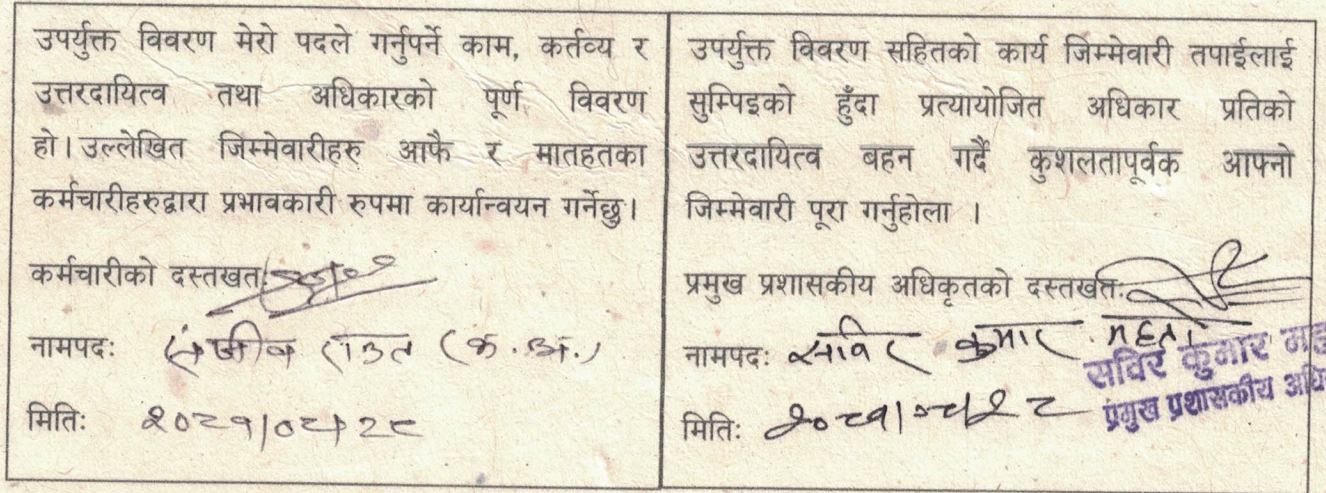 उपर्युक्त विवरण मेरो पदले गर्नुपर्ने काम, कर्तव्य र
उत्तरदायित्व तथा अधिकारको पूर्ण विवरण
हो। उल्लेखित जिम्मेवारीहरु आफै र मातहतका
कर्मचारीहरुद्वारा प्रभावकारी रुपमा कार्यान्वयन गर्नेछु।
कर्मचारीको दस्तखत:
नामपदः संजीव राउत (क.अ.)
मितिः २०८१/०८/२८
उपर्युक्त विवरण सहितको कार्य जिम्मेवारी तपाईलाई
सुम्पिइको हुँदा प्रत्यायोजित अधिकार प्रतिको
उत्तरदायित्व बहन गर्दै कुशलतापूर्वक आफ्नो
जिम्मेवारी पूरा गर्नुहोला ।
प्रमुख प्रशासकीय अधिकृतको दस्तखतः
नामपदः सविर कुमार महतो
सविर कुमार
प्रमुख प्रशासकीय
मितिः २०८१/०८/२८